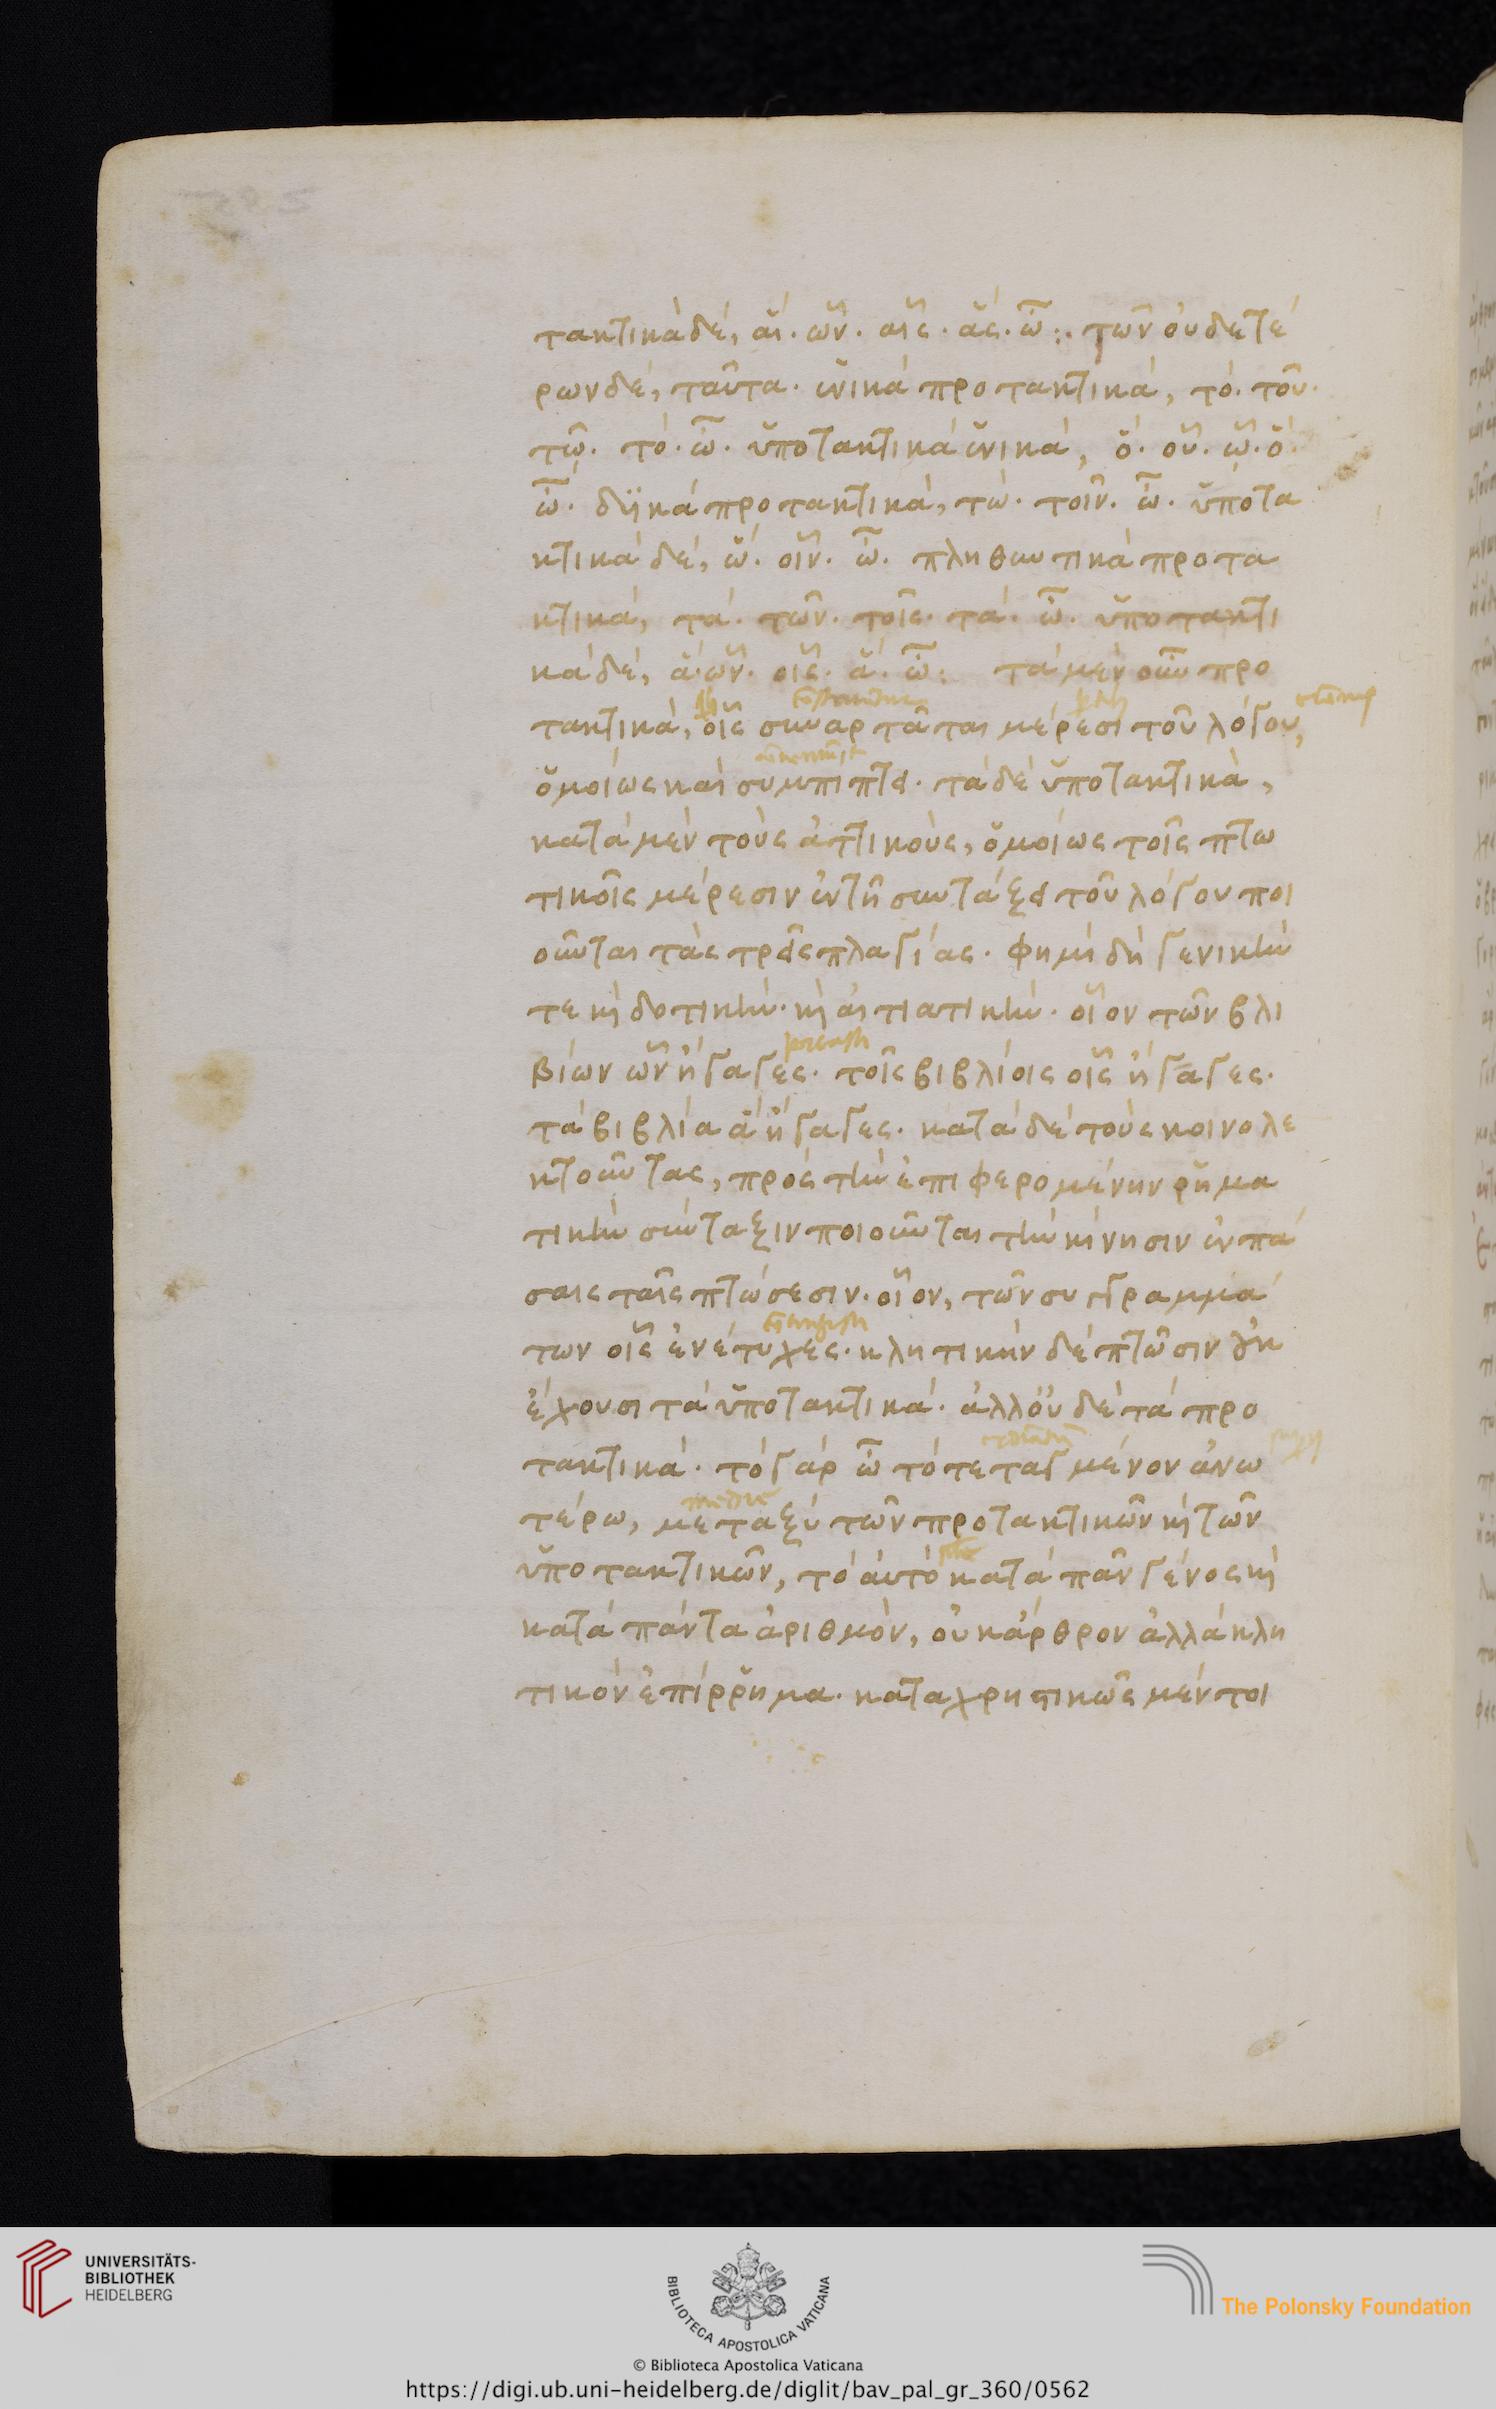 τακτικὰ δέ, αἵ. ὧν. αἷς. ἅς. ὦ :. τῶν οὐδετέ
ρων δέ, ταῦτα. ἑνικὰ προτακτικά, τό. τοῦ.
τῷ. τό. ὦ. ὑποτακτικὰ ἑνικά, ὅ. οὗ. ᾧ. ὅ.
ὦ. δυϊκὰ προτακτικά, τώ. τοῖν. ὦ. ὑποτα
κτικὰ δέ, ὥ. οἷν. ὦ. πληθυντικὰ προτα
κτικά, τά. τῶν. τοῖς. τά. ὦ. ὑποτακτι
κὰ δέ, ἅ. ὧν. οἷς. ἅ. ὦ: τὰ μὲν οὖν προ
τακτικά, οἷς συναρτᾶται μέρεσι τοῦ λόγου,
ὁμοίως καὶ συμπίπτει. τὰ δὲ ὑποτακτικά,
κατὰ μὲν τοὺς ἀττικούς, ὁμοίως τοῖς πτω
τικοῖς μέρεσιν ἐν τῇ συντάξει τοῦ λόγου ποι
οῦνται τὰς τρεῖς πλαγίας. φημὶ δὴ γενικήν
τε καὶ δοτικήν. καὶ αἰτιατικήν. οἷον τῶν βλι
βίων ὧν ἤγαγες. τοῖς βιβλίοις οἷς ἤγαγες.
τὰ βιβλία ἃ ἤγαγες. κατὰ δὲ τοὺς κοινολε
κτοῦντας, πρὸς τὴν ἐπιφερομένην ῥημα
τικὴν σύνταξιν ποιοῦνται τὴν κίνησιν ἐν πά
σαις ταῖς πτώσεσιν. οἷον, τῶν συγγραμμά
των οἷς ἐνέτυχες. κλητικὴν δὲ πτῶσιν οὐκ
ἔχουσι τὰ ὑποτακτικά. ἀλλ' οὐδὲ τὰ προ
τακτικά. τὸ γὰρ ὦ τὸ τεταγμένον ἀνω
τέρω, μεταξὺ τῶν προτακτικῶν καὶ τῶν
ὑποτακτικῶν, τὸ αὐτὸ κατὰ πᾶν γένος καὶ
κατὰ πάντα ἀριθμόν, οὐκ ἄρθρον ἀλλὰ κλη
τικὸν ἐπίρρημα. καταχρηστικῶς μέντοι
UNIVERSITÄTS-
BIBLIOTHEK
HEIDELBERG
BIBLIOTECA APOSTOLICA VATICANA
The Polonsky Foundation
© Biblioteca Apostolica Vaticana
https://digi.ub.uni-heidelberg.de/diglit/bav_pal_gr_360/0562